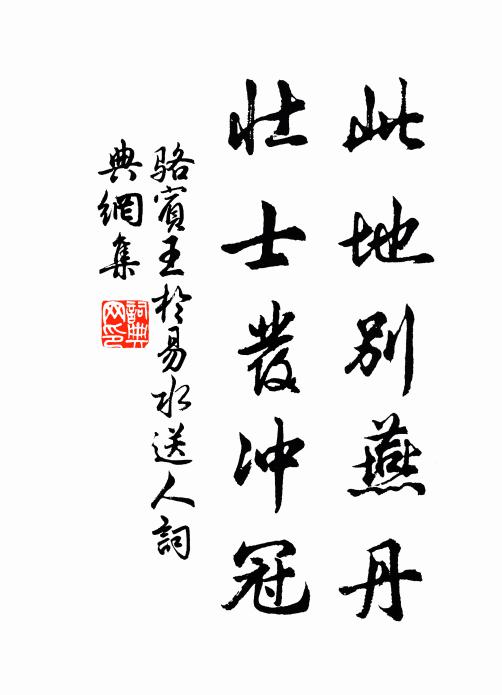 此地别燕丹
壮士發冲冠
駱賓王於易水送人詞
典網集
詞典
网印